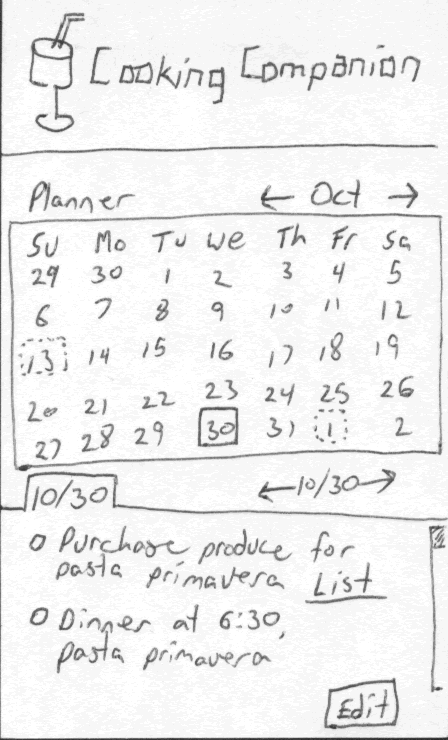 Cooking Companion
Planner ← Oct →
Su Mo Tu We Th Fr Sa
29 30 1 2 3 4 5
6 7 8 9 10 11 12
13 14 15 16 17 18 19
20 21 22 23 24 25 26
27 28 29 30 31 1 2
10/30 ←10/30→
Purchase produce for
pasta primavera List
Dinner at 6:30,
pasta primavera
Edit